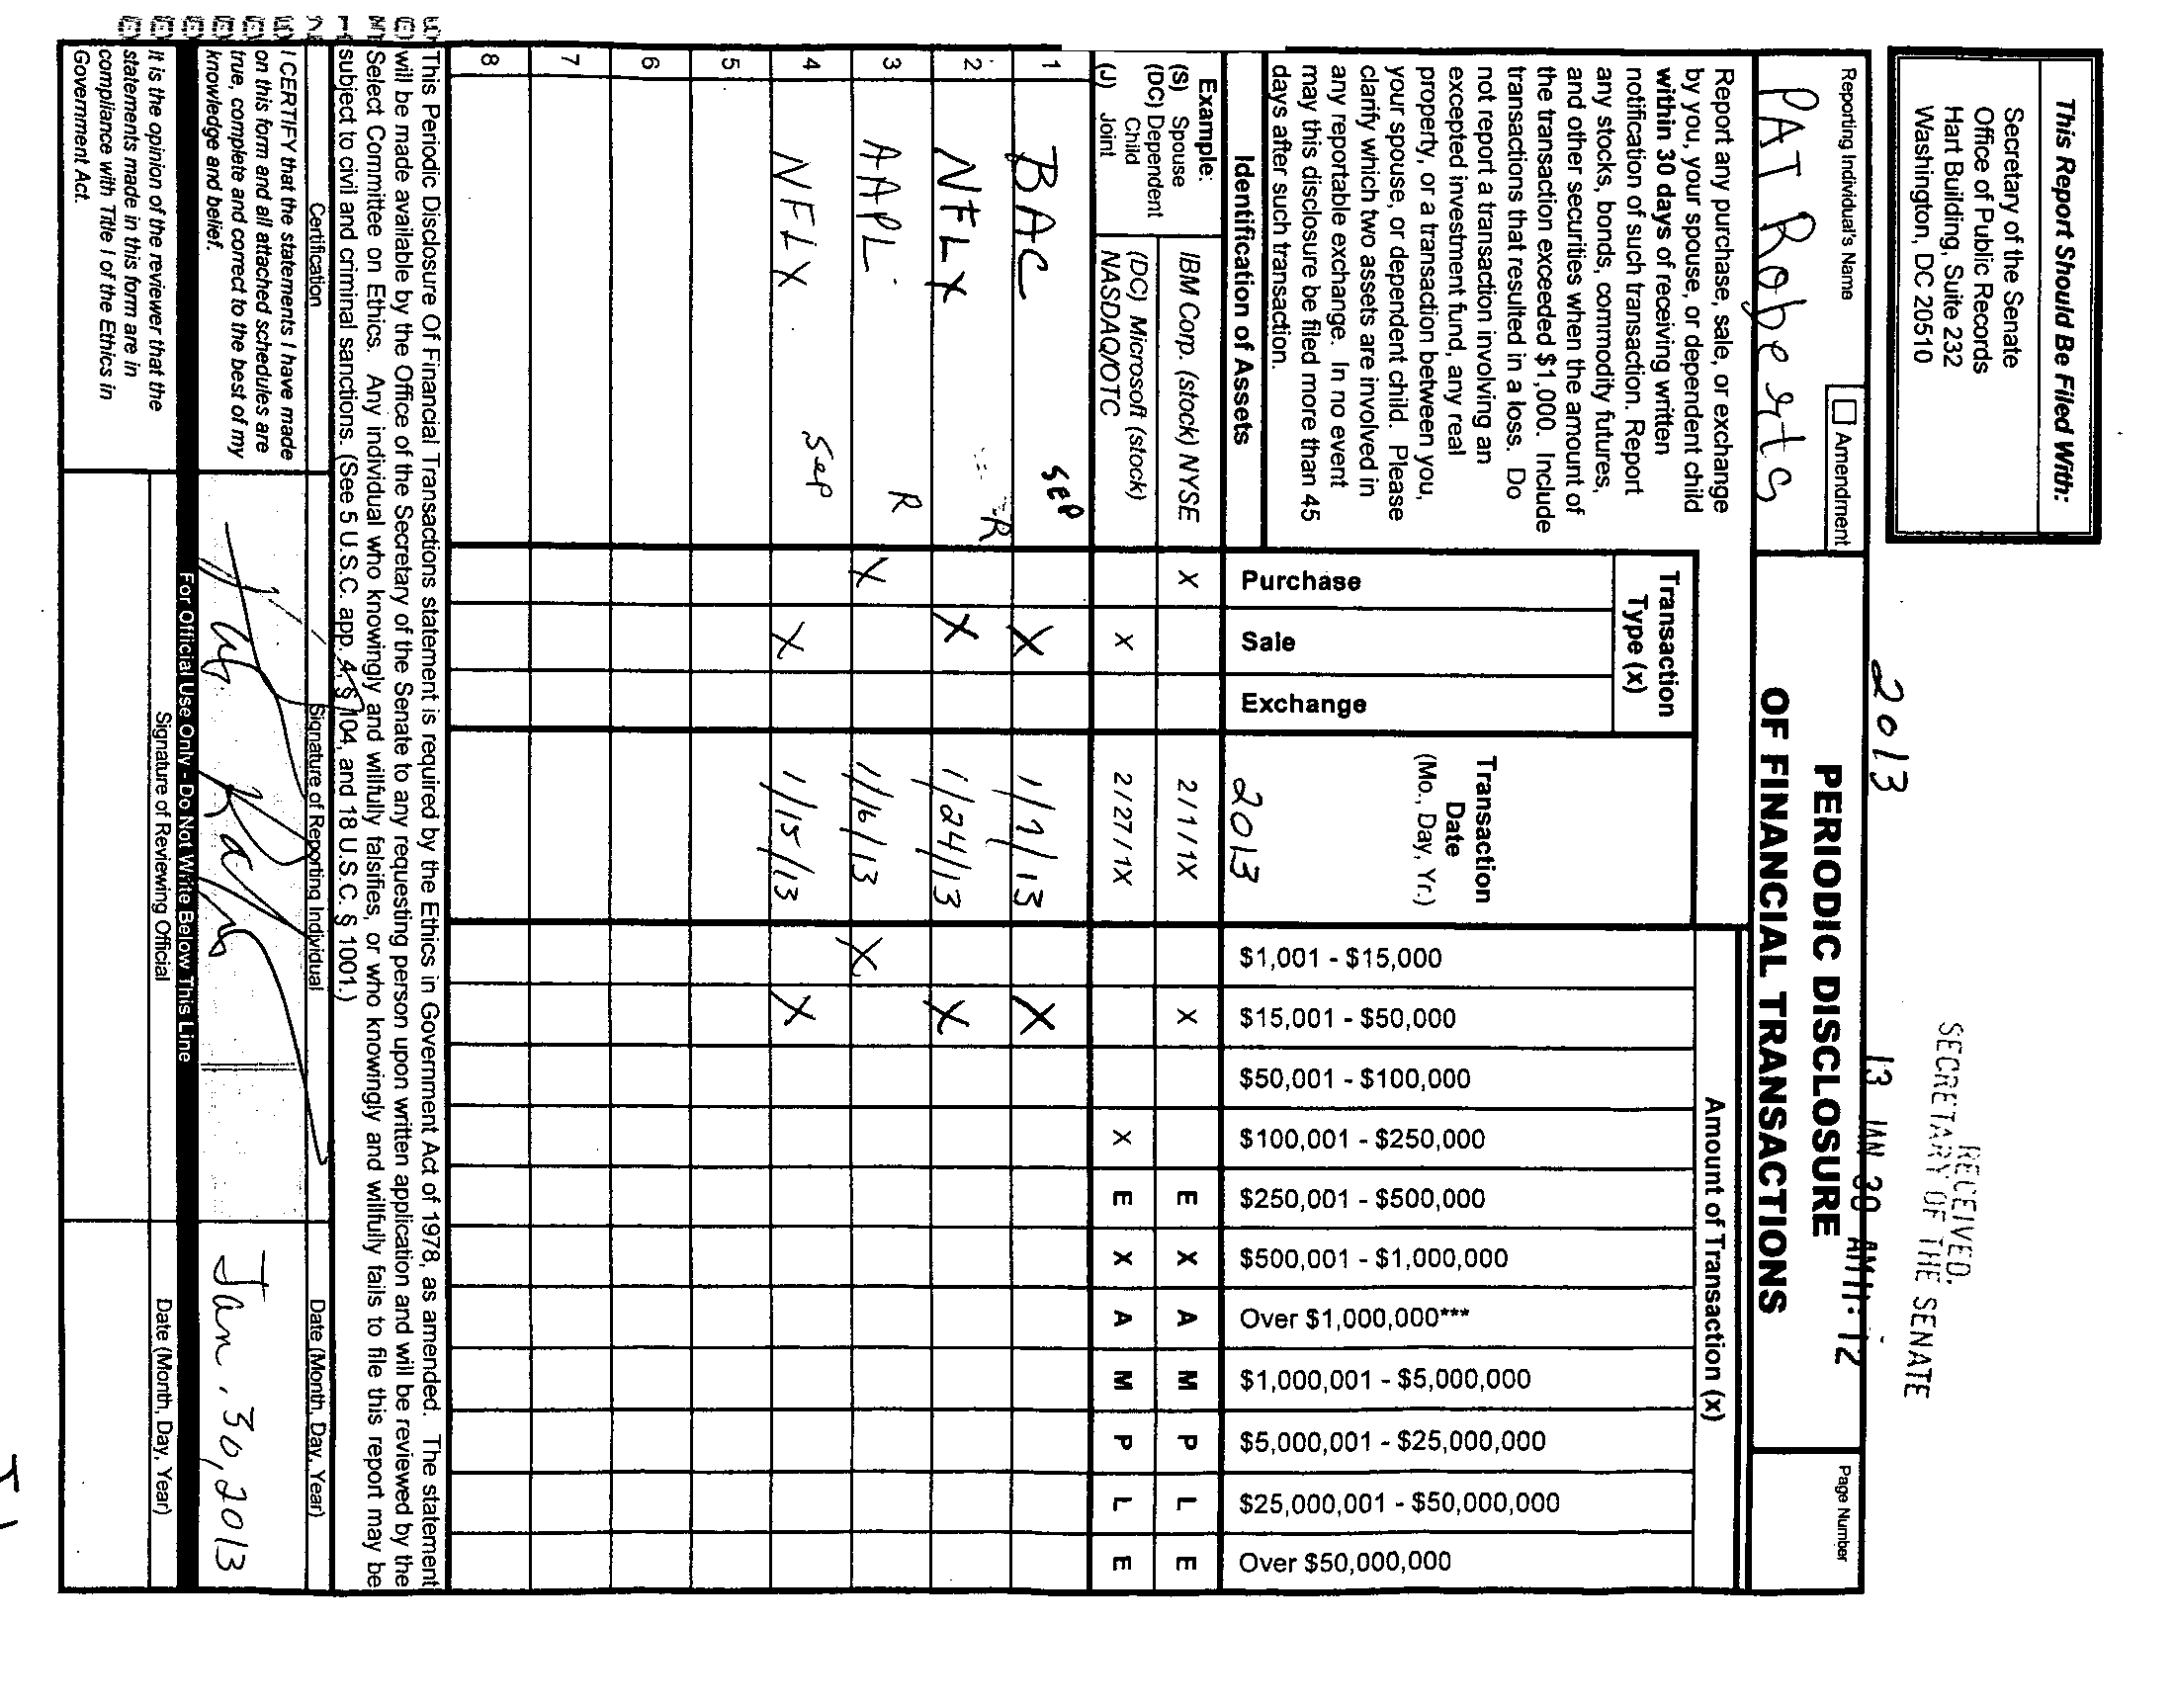 This Report Should Be Filed With:
Secretary of the Senate
Office of Public Records
Hart Building, Suite 232
Washington, DC 20510
2013
RECEIVED
SECRETARY OF THE SENATE
13 JAN 30 AM 11: 12
Reporting Individual's Name
Amendment
PAT Roberts
PERIODIC DISCLOSURE
OF FINANCIAL TRANSACTIONS
Page Number
Report any purchase, sale, or exchange
by you, your spouse, or dependent child
within 30 days of receiving written
notification of such transaction. Report
any stocks, bonds, commodity futures,
and other securities when the amount of
the transaction exceeded $1,000. Include
transactions that resulted in a loss. Do
not report a transaction involving an
excepted investment fund, any real
property, or a transaction between you,
your spouse, or dependent child. Please
clarify which two assets are involved in
any reportable exchange. In no event
may this disclosure be filed more than 45
days after such transaction.
Identification of Assets
Transaction
Type (x)
Purchase
Sale
Exchange
Transaction
Date
(Mo., Day, Yr.)
2013
Amount of Transaction (x)
$1,001 - $15,000
$15,001 - $50,000
$50,001 - $100,000
$100,001 - $250,000
$250,001 - $500,000
$500,001 - $1,000,000
Over $1,000,000***
$1,000,001 - $5,000,000
$5,000,001 - $25,000,000
$25,000,001 - $50,000,000
Over $50,000,000
Example:
(S) Spouse
(DC) Dependent
Child
(J) Joint
IBM Corp. (stock) NYSE X 2 / 1 / 1X X E X A M P L E
(DC) Microsoft (stock)
NASDAQ/OTC X 2 / 27 / 1X X E X A M P L E
1 BAC SEP X 1/7/13 X
2 NFLX R X 1/24/13 X
3 AAPL R X 1/16/13 X
4 NFLX Sep X 1/15/13 X
5
6
7
8
This Periodic Disclosure Of Financial Transactions statement is required by the Ethics in Government Act of 1978, as amended. The statement
will be made available by the Office of the Secretary of the Senate to any requesting person upon written application and will be reviewed by the
Select Committee on Ethics. Any individual who knowingly and willfully falsifies, or who knowingly and willfully fails to file this report may be
subject to civil and criminal sanctions. (See 5 U.S.C. app. 4, § 104, and 18 U.S.C. § 1001.)
Certification
Signature of Reporting Individual
Date (Month, Day, Year)
I CERTIFY that the statements I have made
on this form and all attached schedules are
true, complete and correct to the best of my
knowledge and belief.
Jan. 30, 2013
For Official Use Only - Do Not Write Below This Line
It is the opinion of the reviewer that the
statements made in this form are in
compliance with Title I of the Ethics in
Government Act.
Signature of Reviewing Official
Date (Month, Day, Year)